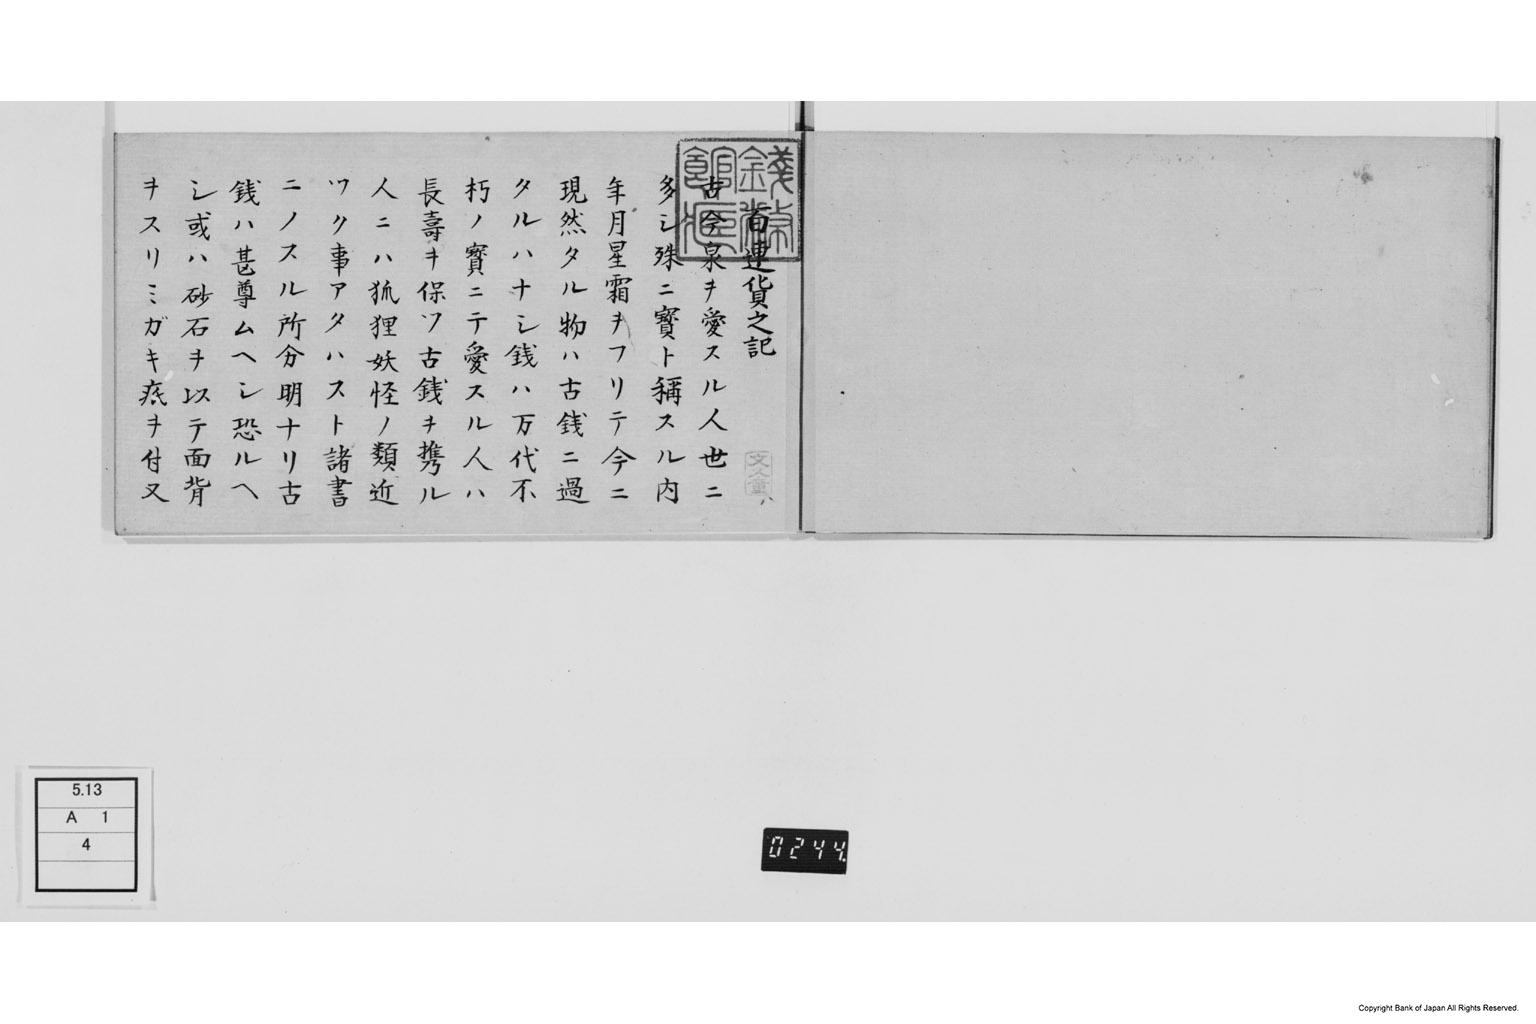 百連貨之記
古今泉ヲ愛スル人世ニ
多シ殊ニ寳ト稱スル内
年月星霜ヲフリテ今ニ
現然タル物ハ古銭ニ過
タルハナシ銭ハ万代不
朽ノ寳ニテ愛スル人ハ
長壽ヲ保ツ古銭ヲ携ル
人ニハ狐狸妖怪ノ類近
ツク事アタハスト諸書
ニノスル所分明ナリ古
銭ハ甚尊ムヘシ恐ルヘ
シ或ハ砂石ヲ以テ面背
ヲスリミガキ疵ヲ付又
5.13
A 1
4
0244
Copyright Bank of Japan All Rights Reserved.